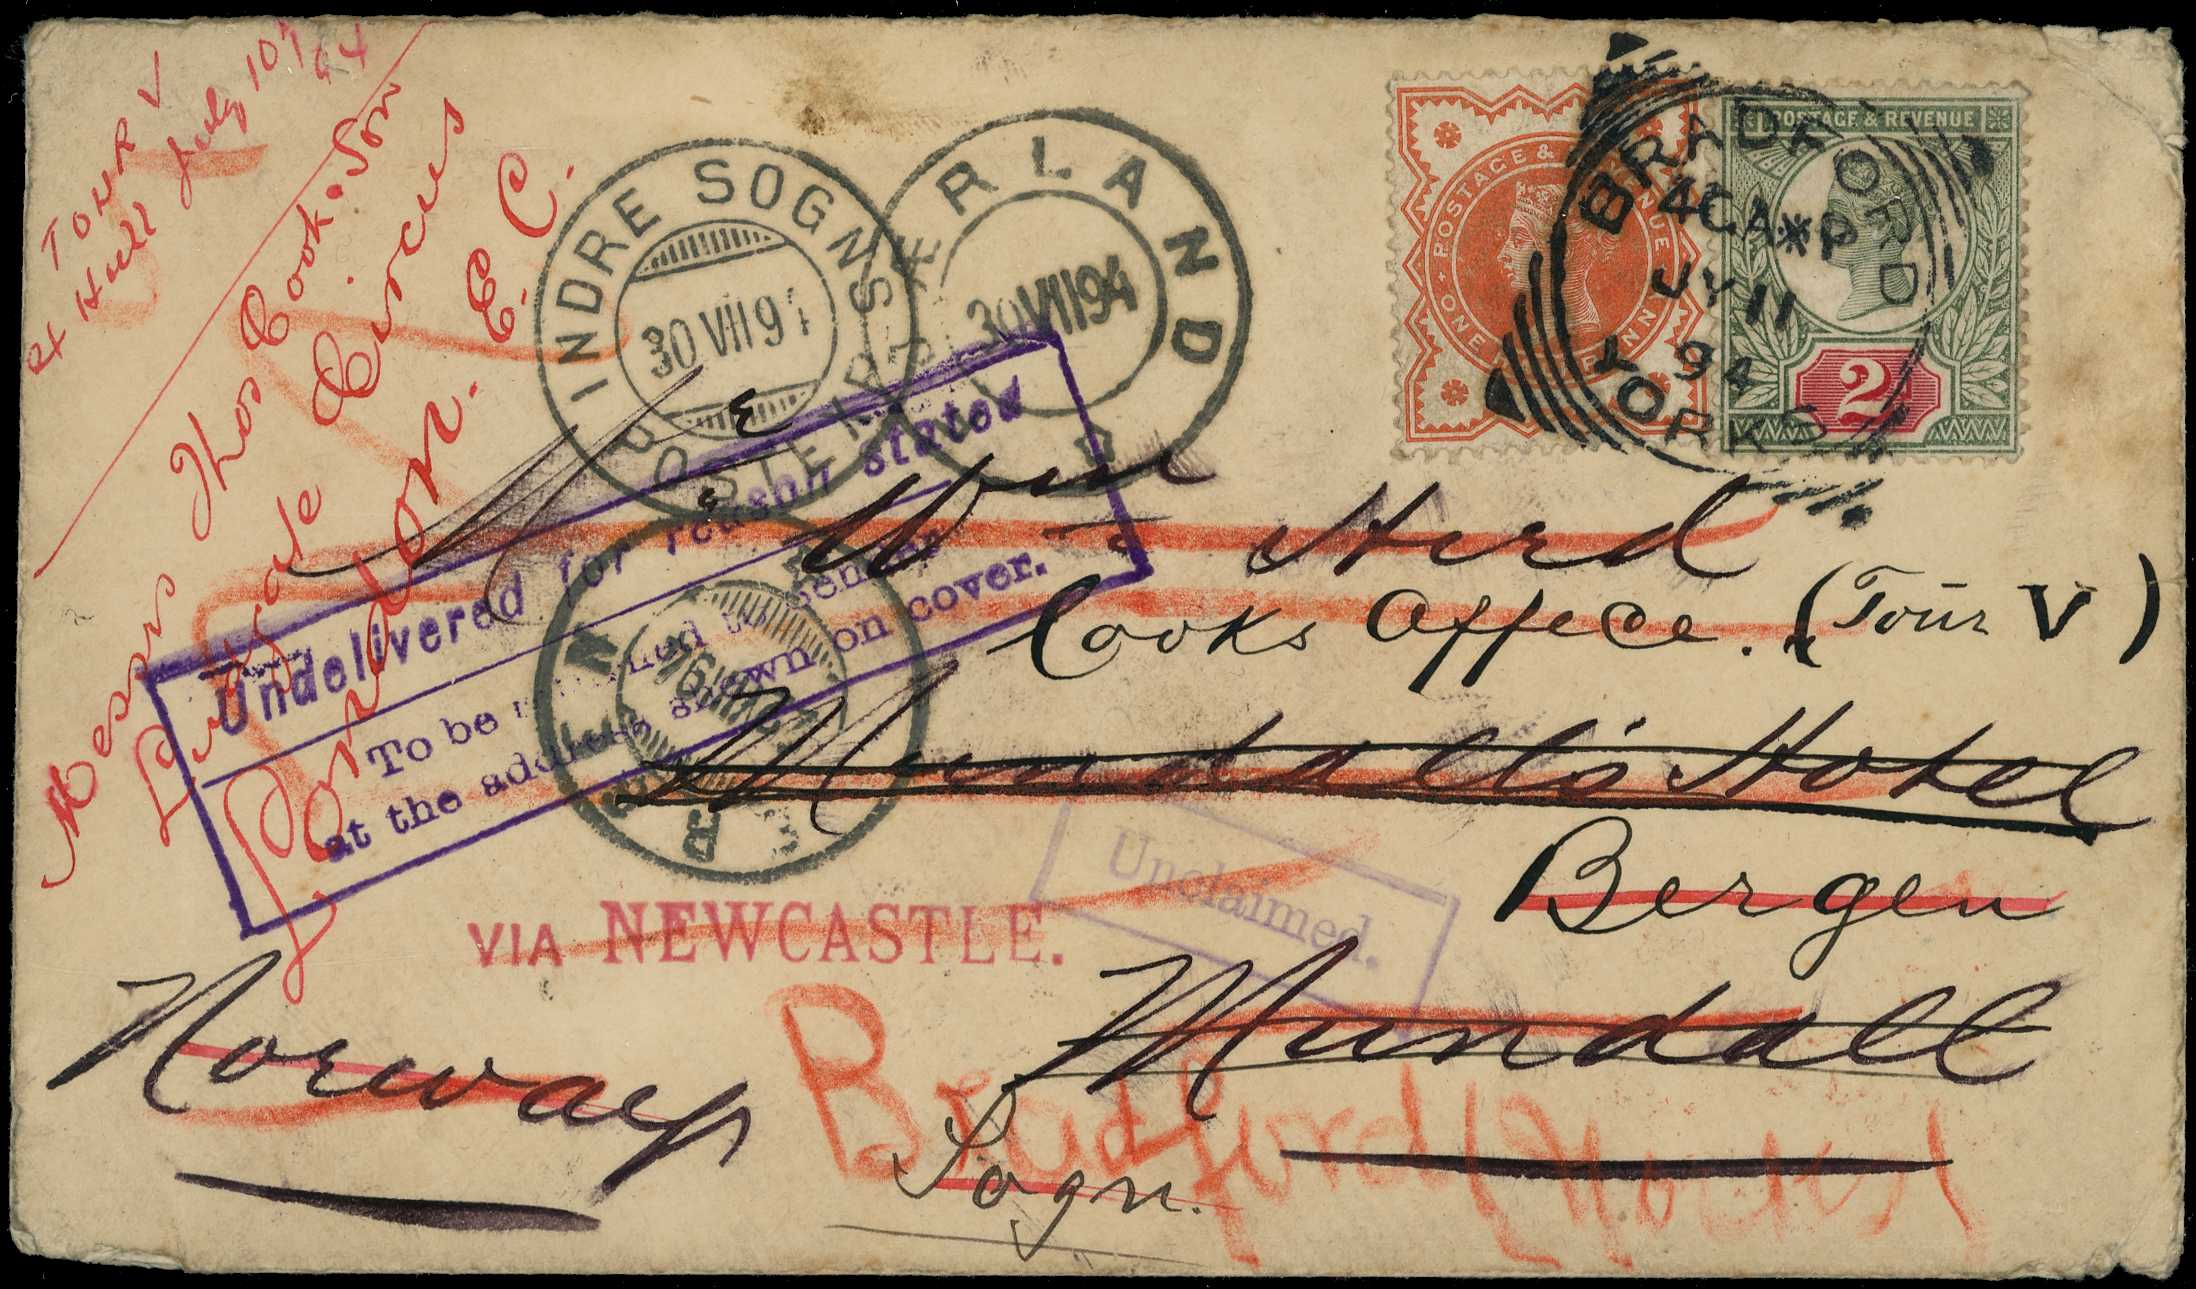 TOUR V
ex Hull July 10th/94
Messrs Thos Cook & Son
Ludgate Circus
London. E. C.
INDRE SOGNS
30 VII 94
FJERLAND
30 VII 94
POSTAGE & REVENUE
ONE HALFPENNY
POSTAGE & REVENUE
2d
BRADFORD
4
JY 11
94
YORKS
Undelivered for reason stated
To be returned to sender
at the address shown on cover.
Wm Hird
Cooks Office. (Tour V)
Mundall's Hotel
BERGEN
Unclaimed.
Bergen
VIA NEWCASTLE.
Mundall
Norway
Sogn.
Bradford (Yorks)